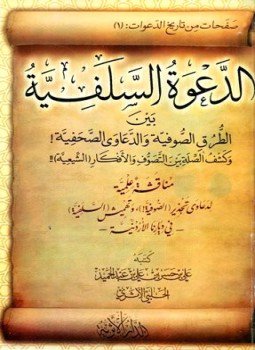 صفحات من تاريخ الدعوات: (٦)
الدَّعوَةُ السَّلَفِيَّةُ
بَيْنَ
الطُّرُقِ الصُّوفِيَّةِ وَالدَّعَاوَى الصَّحَفِيَّةِ!
وَكَشْفُ الصِّلَةِ بَيْنَ التَّصَوُّفِ وَالأَفْكَارِ (الشِّيعِيَّةِ)!!
مناقشة علمية
لدعاوى تجذير (الصوفية!)، وتهميش (السلفية)
- في بلادنا الأردنية -
كتبه
علي بن حسن بن علي بن عبد الحميد
الحلبي الأثري
الدار الأثرية